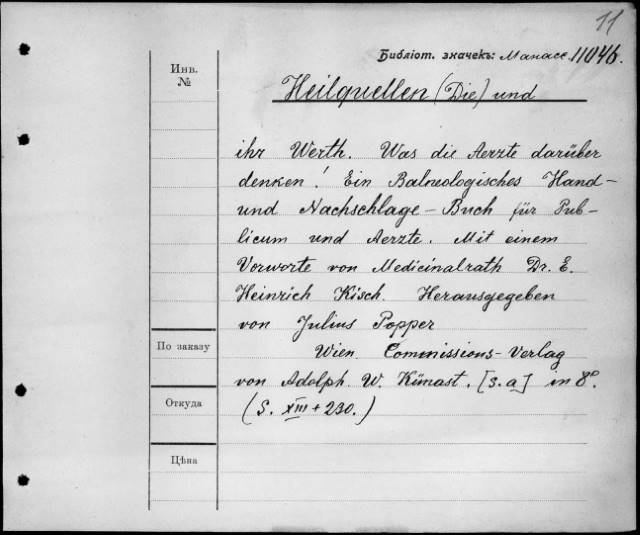 11
Библіот. значекъ: Манасс. 11046.
Инв.
№
Heilquellen (Die) und
ihr Werth. Was die Aerzte darüber
denken! Ein Balneologisches Hand-
und Nachschlage-Buch für Pub-
licum und Aerzte. Mit einem
Vorworte von Medicinalrath Dr. E.
Heinrich Kisch. Herausgegeben
von Julius Popper
По заказу
Wien Commissions-Verlag
von Adolph. W. Künast. [s.a] in 8°.
Откуда
(S. XIII + 230.)
Цѣна